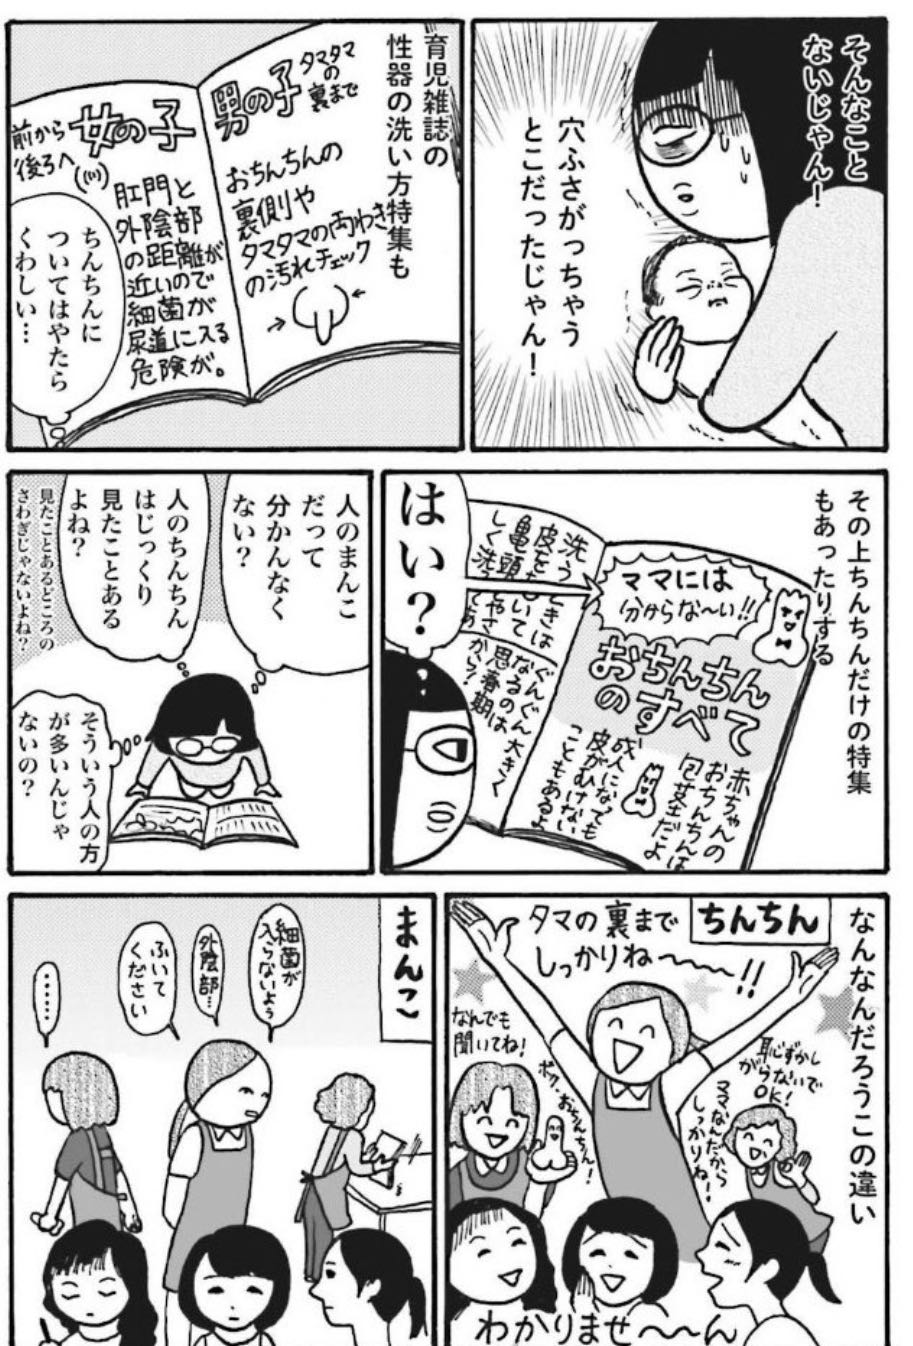 そんなこと
ないじゃん！
穴ふさがっちゃう
とこだったじゃん！
育児雑誌の
性器の洗い方特集も
男の子
タマタマ
の
裏まで
おちんちんの
裏側や
タマタマの両わき
の汚れチェック
女の子
前から
後ろへ
肛門と
外陰部
の距離が
近いので
細菌が
尿道に入る
危険が。
ちんちんに
ついてはやたら
くわしい…
その上ちんちんだけの特集
もあったりする
ママには
分からな〜い!!
おちんちん
のすべて
赤ちゃんの
おちんちんは
包茎だよ
成人になっても
皮がむけない
こともあるよ
ぐんぐん大きく
なるのは
思春期
から！
はい？
人のまんこ
だって
分かんなく
ない？
人のちんちん
はじっくり
見たことある
よね？
見たことあるどころの
さわぎじゃないよね？
そういう人の方
が多いんじゃ
ないの？
なんなんだろうこの違い
ちんちん
タマの裏まで
しっかりね〜〜〜!!
なんでも
聞いてね！
ボク、おちんちん！
恥ずかし
がらないで
OK！
ママなんだから
しっかりね！
わかりませ〜〜ん
まんこ
細菌が
入らないよぅ
外陰部…
ふいて
ください
……